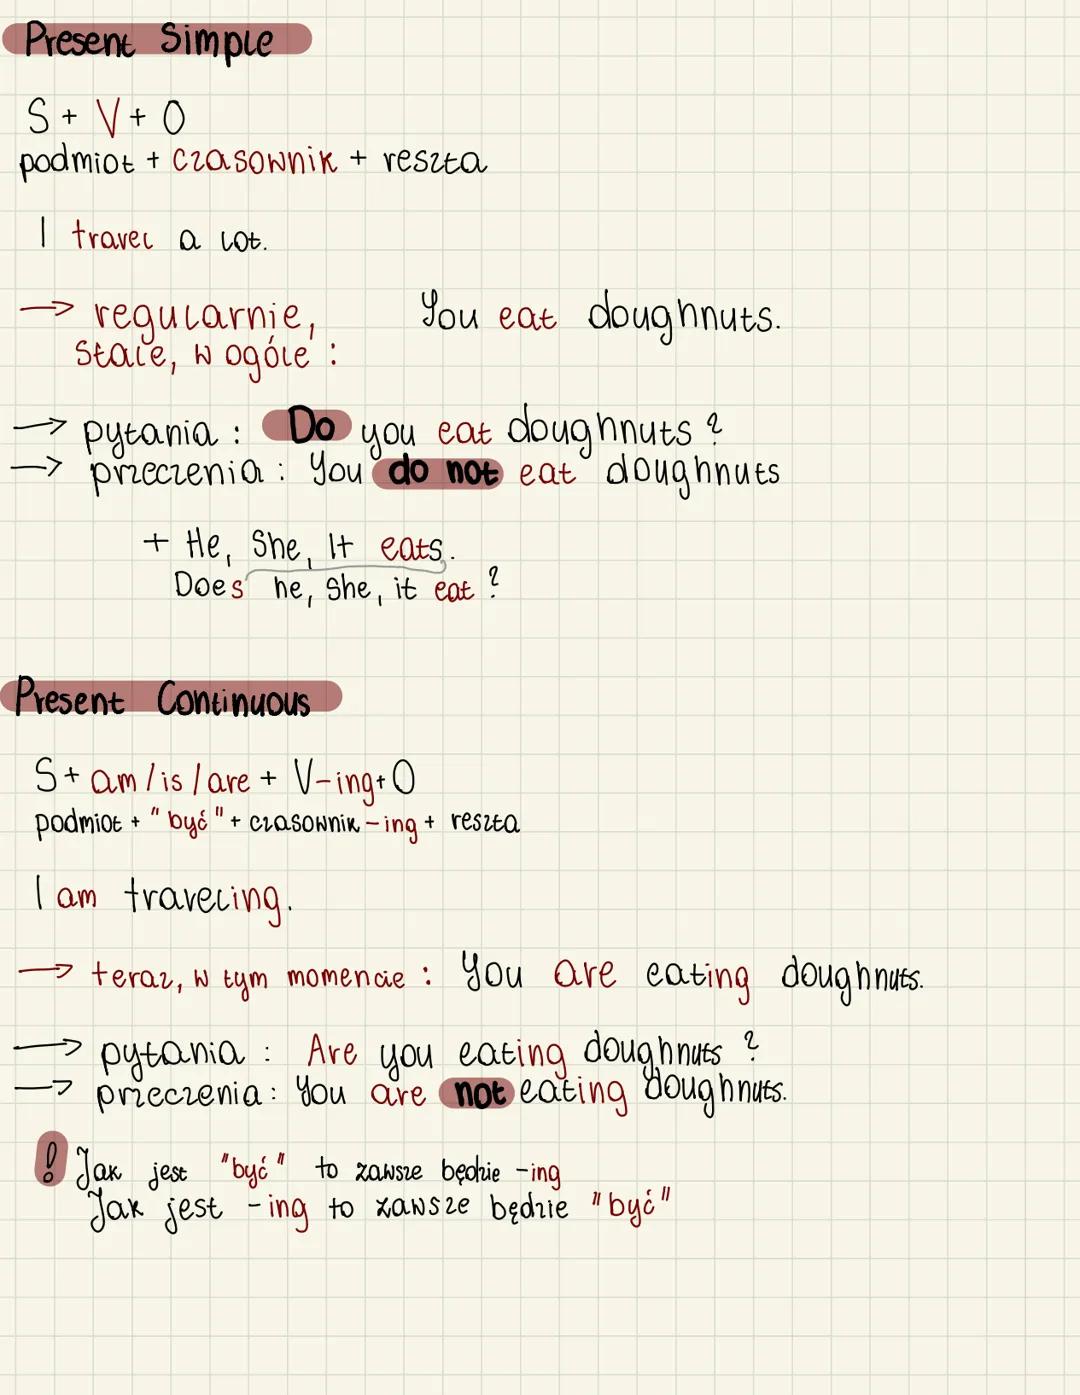 Present Simple
S + V + O
podmiot + czasownik + reszta
I travel a lot.
→ regularnie, You eat doughnuts.
stale, w ogóle :
→ pytania : Do you eat doughnuts ?
→ przeczenia : You do not eat doughnuts
+ He, She, It eats.
Does he, she, it eat ?
Present Continuous
S + am / is / are + V-ing + O
podmiot + "być" + czasownik - ing + reszta
I am traveling.
→ teraz, w tym momencie : You are eating doughnuts.
→ pytania : Are you eating doughnuts ?
→ przeczenia : You are not eating doughnuts.
! Jak jest "być" to zawsze będzie -ing
Jak jest -ing to zawsze będzie "być"